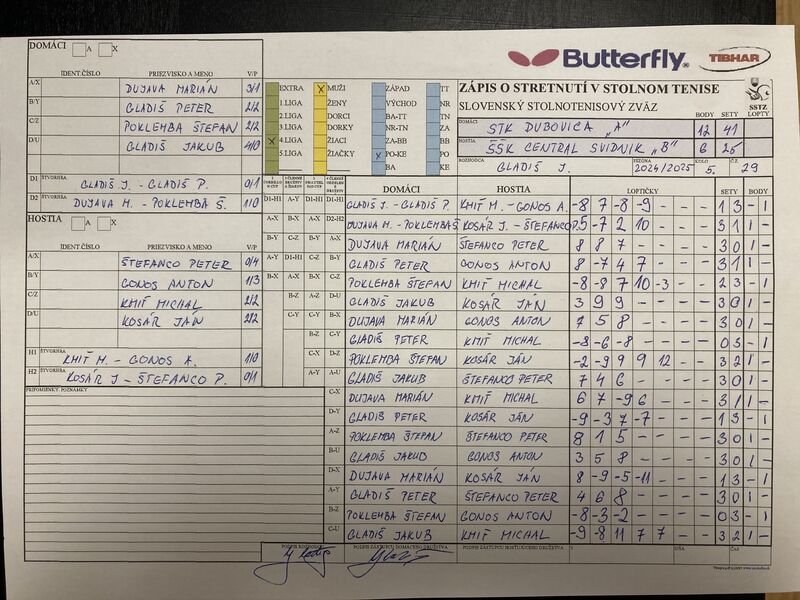 DOMÁCI A X
Butterfly TIBHAR
IDENT.ČÍSLO PRIEZVISKO A MENO V/P
A/X DUJAVA MARIÁN 3/1
B/Y GLADIŠ PETER 2/2
C/Z POKLEMBA ŠTEFAN 2/2
D/U GLADIŠ JAKUB 4/0
D1 ŠTVORHRA GLADIŠ J. - GLADIŠ P. 0/1
D2 ŠTVORHRA DUJAVA M. - POKLEMBA Š. 1/0
HOSTIA A X
IDENT.ČÍSLO PRIEZVISKO A MENO V/P
A/X ŠTEFANCO PETER 0/4
B/Y GONOS ANTON 1/3
C/Z KMIŤ MICHAL 2/2
D/U KOSÁR JÁN 2/2
H1 ŠTVORHRA KMIŤ M. - GONOS A. 1/0
H2 ŠTVORHRA KOSÁR J - ŠTEFANCO P. 0/1
PRIPOMIENKY, POZNÁMKY
EXTRA X MUŽI ZÁPAD TT
1.LIGA ŽENY VÝCHOD NR
2.LIGA DORCI BA-TT TN
3.LIGA DORKY NR-TN ZA
X 4.LIGA ŽIACI ZA-BB BB
5.LIGA ŽIAČKY X PO-KE PO
KE
BA
ZÁPIS O STRETNUTÍ V STOLNOM TENISE
SLOVENSKÝ STOLNOTENISOVÝ ZVÄZ
SSTZ
BODY SETY LOPTY
DOMÁCI STK DUBOVICA „A" 12 41
HOSTIA ŠŠK CENTRAL SVIDNIK „B" 6 25
ROZHODCA GLADIŠ J. SEZÓNA 2024/2025 KOLO 5. Č.Z. 29
DOMÁCI HOSTIA LOPTIČKY SETY BODY
D1-H1 A-Y D1-H1 D1-H1 GLADIŠ J. - GLADIŠ P. KMIŤ M. - GONOS A. -8 7 -8 -9 - - - 1 3 - 1
A-X B-X A-X D2-H2 DUJAVA M. - POKLEMBA Š KOSÁR J. - ŠTEFANCO P. 5 -7 2 10 - - - 3 1 1 -
B-Y C-Z B-Y A-X DUJAVA MARIÁN ŠTEFANCO PETER 8 8 7 - - - - 3 0 1 -
A-Y D1-H1 C-Z B-Y GLADIŠ PETER GONOS ANTON 8 -7 4 7 - - - 3 1 1 -
B-X A-X B-X C-Z POKLEMBA ŠTEFAN KMIŤ MICHAL -8 -8 7 10 -3 - - 2 3 - 1
B-Z A-Z D-U GLADIŠ JAKUB KOSÁR JÁN 3 9 9 - - - - 3 0 1 -
C-Y C-Y B-X DUJAVA MARIÁN GONOS ANTON 7 5 8 - - - - 3 0 1 -
B-Z C-Y GLADIŠ PETER KMIŤ MICHAL -8 -6 -8 - - - - 0 3 - 1
C-X D-Z POKLEMBA ŠTEFAN KOSÁR JÁN -2 -9 9 9 12 - - 3 2 1 -
A-Y A-U GLADIŠ JAKUB ŠTEFANCO PETER 7 4 6 - - - - 3 0 1 -
C-X DUJAVA MARIÁN KMIŤ MICHAL 6 7 -9 6 - - - 3 1 1 -
D-Y GLADIŠ PETER KOSÁR JÁN -9 -3 7 -7 - - - 1 3 - 1
A-Z POKLEMBA ŠTEFAN ŠTEFANCO PETER 8 1 5 - - - - 3 0 1 -
B-U GLADIŠ JAKUB GONOS ANTON 3 5 8 - - - - 3 0 1 -
D-X DUJAVA MARIÁN KOSÁR JÁN 8 -9 -5 -11 - - - 1 3 - 1
A-Y GLADIŠ PETER ŠTEFANCO PETER 4 6 8 - - - - 3 0 1 -
B-Z POKLEMBA ŠTEFAN GONOS ANTON -8 -3 -2 - - - - 0 3 - 1
C-U GLADIŠ JAKUB KMIŤ MICHAL -9 -8 11 7 7 - - 3 2 1 -
PODPIS ROZHODCU PODPIS ZÁSTUPCU DOMÁCEHO DRUŽSTVA PODPIS ZÁSTUPCU HOSŤUJÚCEHO DRUŽSTVA V DŇA ČAS